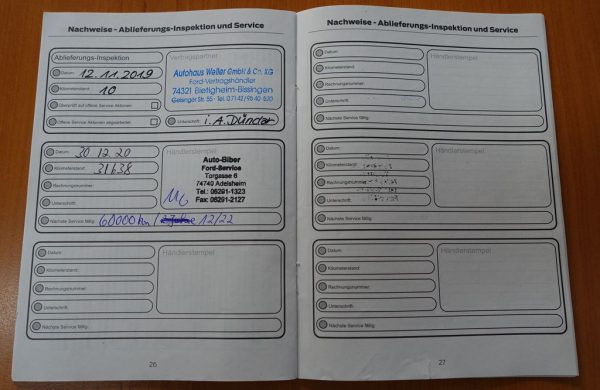 Nachweise - Ablieferungs-Inspektion und Service
Ablieferungs-Inspektion
Datum: 12.11.2019
Kilometerstand: 10
Überprüft auf offene Service Aktionen
Offene Service Aktionen abgearbeitet
Vertragspartner
Autohaus Weller GmbH & Co. KG
Ford-Vertragshändler
74321 Bietigheim-Bissingen
Geisinger Str. 55 · Tel. 07142/9640-520
Unterschrift: i.A. Dündar
Datum: 30 12 20
Kilometerstand: 31638
Rechnungsnummer:
Unterschrift:
Händlerstempel
Auto-Biber
Ford-Service
Torgasse 6
74740 Adelsheim
Tel.: 06291-1323
Fax: 06291-2127
Nächste Service fällig: 60000 km / 12/22
Datum:
Kilometerstand:
Rechnungsnummer:
Unterschrift:
Händlerstempel
Nächste Service fällig:
26
Nachweise - Ablieferungs-Inspektion und Service
Datum:
Kilometerstand:
Rechnungsnummer:
Unterschrift:
Händlerstempel
Nächste Service fällig:
Datum:
Kilometerstand:
Rechnungsnummer:
Unterschrift:
Händlerstempel
Nächste Service fällig:
Datum:
Kilometerstand:
Rechnungsnummer:
Unterschrift:
Händlerstempel
Nächste Service fällig:
27